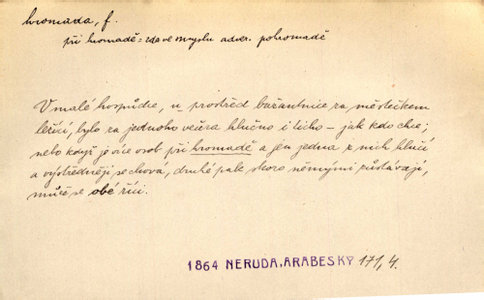 hromada, f.
při hromadě = zde ve smyslu adver. pohromadě
V malé hospůdce, u prostřed bažantnice za městečkem
ležící, bylo za jednoho večera hlučno i ticho – jak kdo chce;
nebo když je více osob při hromadě a jen jedna z nich hlučí
a výstředněji se chová, druhé pak skoro němými zůstávají,
může se obé říci.
1864 NERUDA, ARABESKY 171, 4.